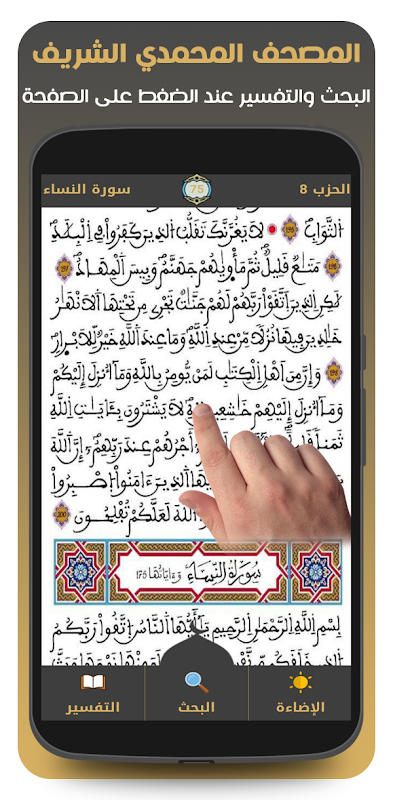 المصحف المحمدي الشريف
البحث والتفسير عند الضغط على الصفحة
الحزب 8 75 سورة النساء
اَلثَّوَابِ 195 لَا يَغُرَّنَّكَ تَقَلُّبُ اُلذِينَ كَفَرُواْ فِي اِلْبِلَٰدِ
196 مَتَٰعٌ قَلِيلٌ ثُمَّ مَأْوِيٰهُمْ جَهَنَّمُ وَبِيسَ اَلْمِهَادُ 197
لَٰكِنِ اِلذِينَ اَتَّقَوْاْ رَبَّهُمْ لَهُمْ جَنَّٰتٌ تَجْرِي مِن تَحْتِهَا اَلَانْهَٰرُ
خَٰلِدِينَ فِيهَا نُزُلًا مِّنْ عِندِ اِللَّهِ وَمَا عِندَ اَللَّهِ خَيْرٌ لِّلَابْرٰارِ
198 وَإِنَّ مِنَ اَهْلِ اِلْكِتَٰبِ لَمَنْ يُّومِنُ بِاللَّهِ وَمَآ أُنزِلَ إِلَيْكُمْ
وَمَآ أُنزِلَ إِلَيْهِمْ خَٰشِعِينَ لِلهِ لَا يَشْتَرُونَ بِـَٔايَٰتِ اِللَّهِ
ثَمَناً أَجْرُهُمْ عِندَ رَبِّهِمُۥٓ إِنَّ اَللَّهَ
اَلذِينَ ءَامَنُواْ اُصْبِرُواْ
اَللَّهَ لَعَلَّكُمْ تُفْلِحُونَ 200
سُورَةُ النِّسَاءِ وَءَايَاتُهَا 175
بِسْمِ اِللَّهِ اِلرَّحْمَٰنِ اِلرَّحِيمِ يَٰٓأَيُّهَا اَلنَّاسُ اُتَّقُواْ رَبَّكُمُ
اُلذِي خَلَقَكُم مِنْهَا زَوْجَهَا وَبَثَّ
الإضاءة البحث التفسير